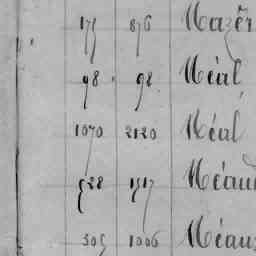 175 876 Mazèr
98 98 Méal
1070 2120 Réal
528 1517 Méaud
305 1006 Méaux